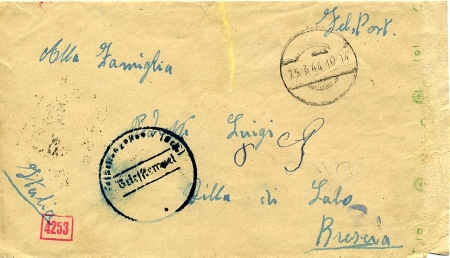 Fel. Post.
25.3.44.10-14
Alla Famiglia
Luigi
Briefstempel
Villa di Salo
Italia
Brescia
4253